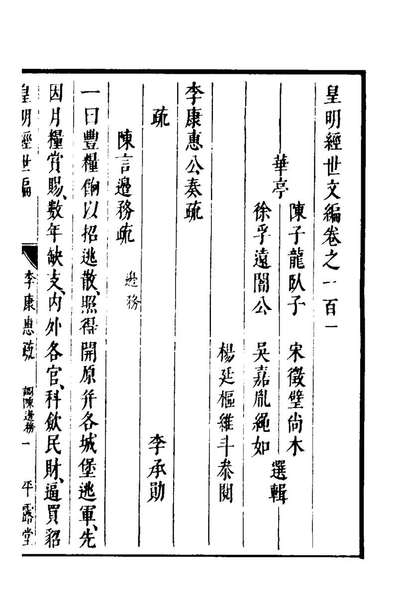 皇明經世文編卷之一百一
華亭
陳子龍臥子　宋徵璧尚木
徐孚遠闇公　吳嘉胤繩如
選輯
楊廷樞維斗叅閱
李康惠公奏疏
疏
陳言邊務疏　邊務　李承勛
一曰豐糧餉以招逃散、照得開原并各城堡逃軍、先
因月糧賞賜、數年缺支、内外各官、科歛民財、逼買貂
皇明經世編　李康惠疏　調陳邊務　一　平露堂